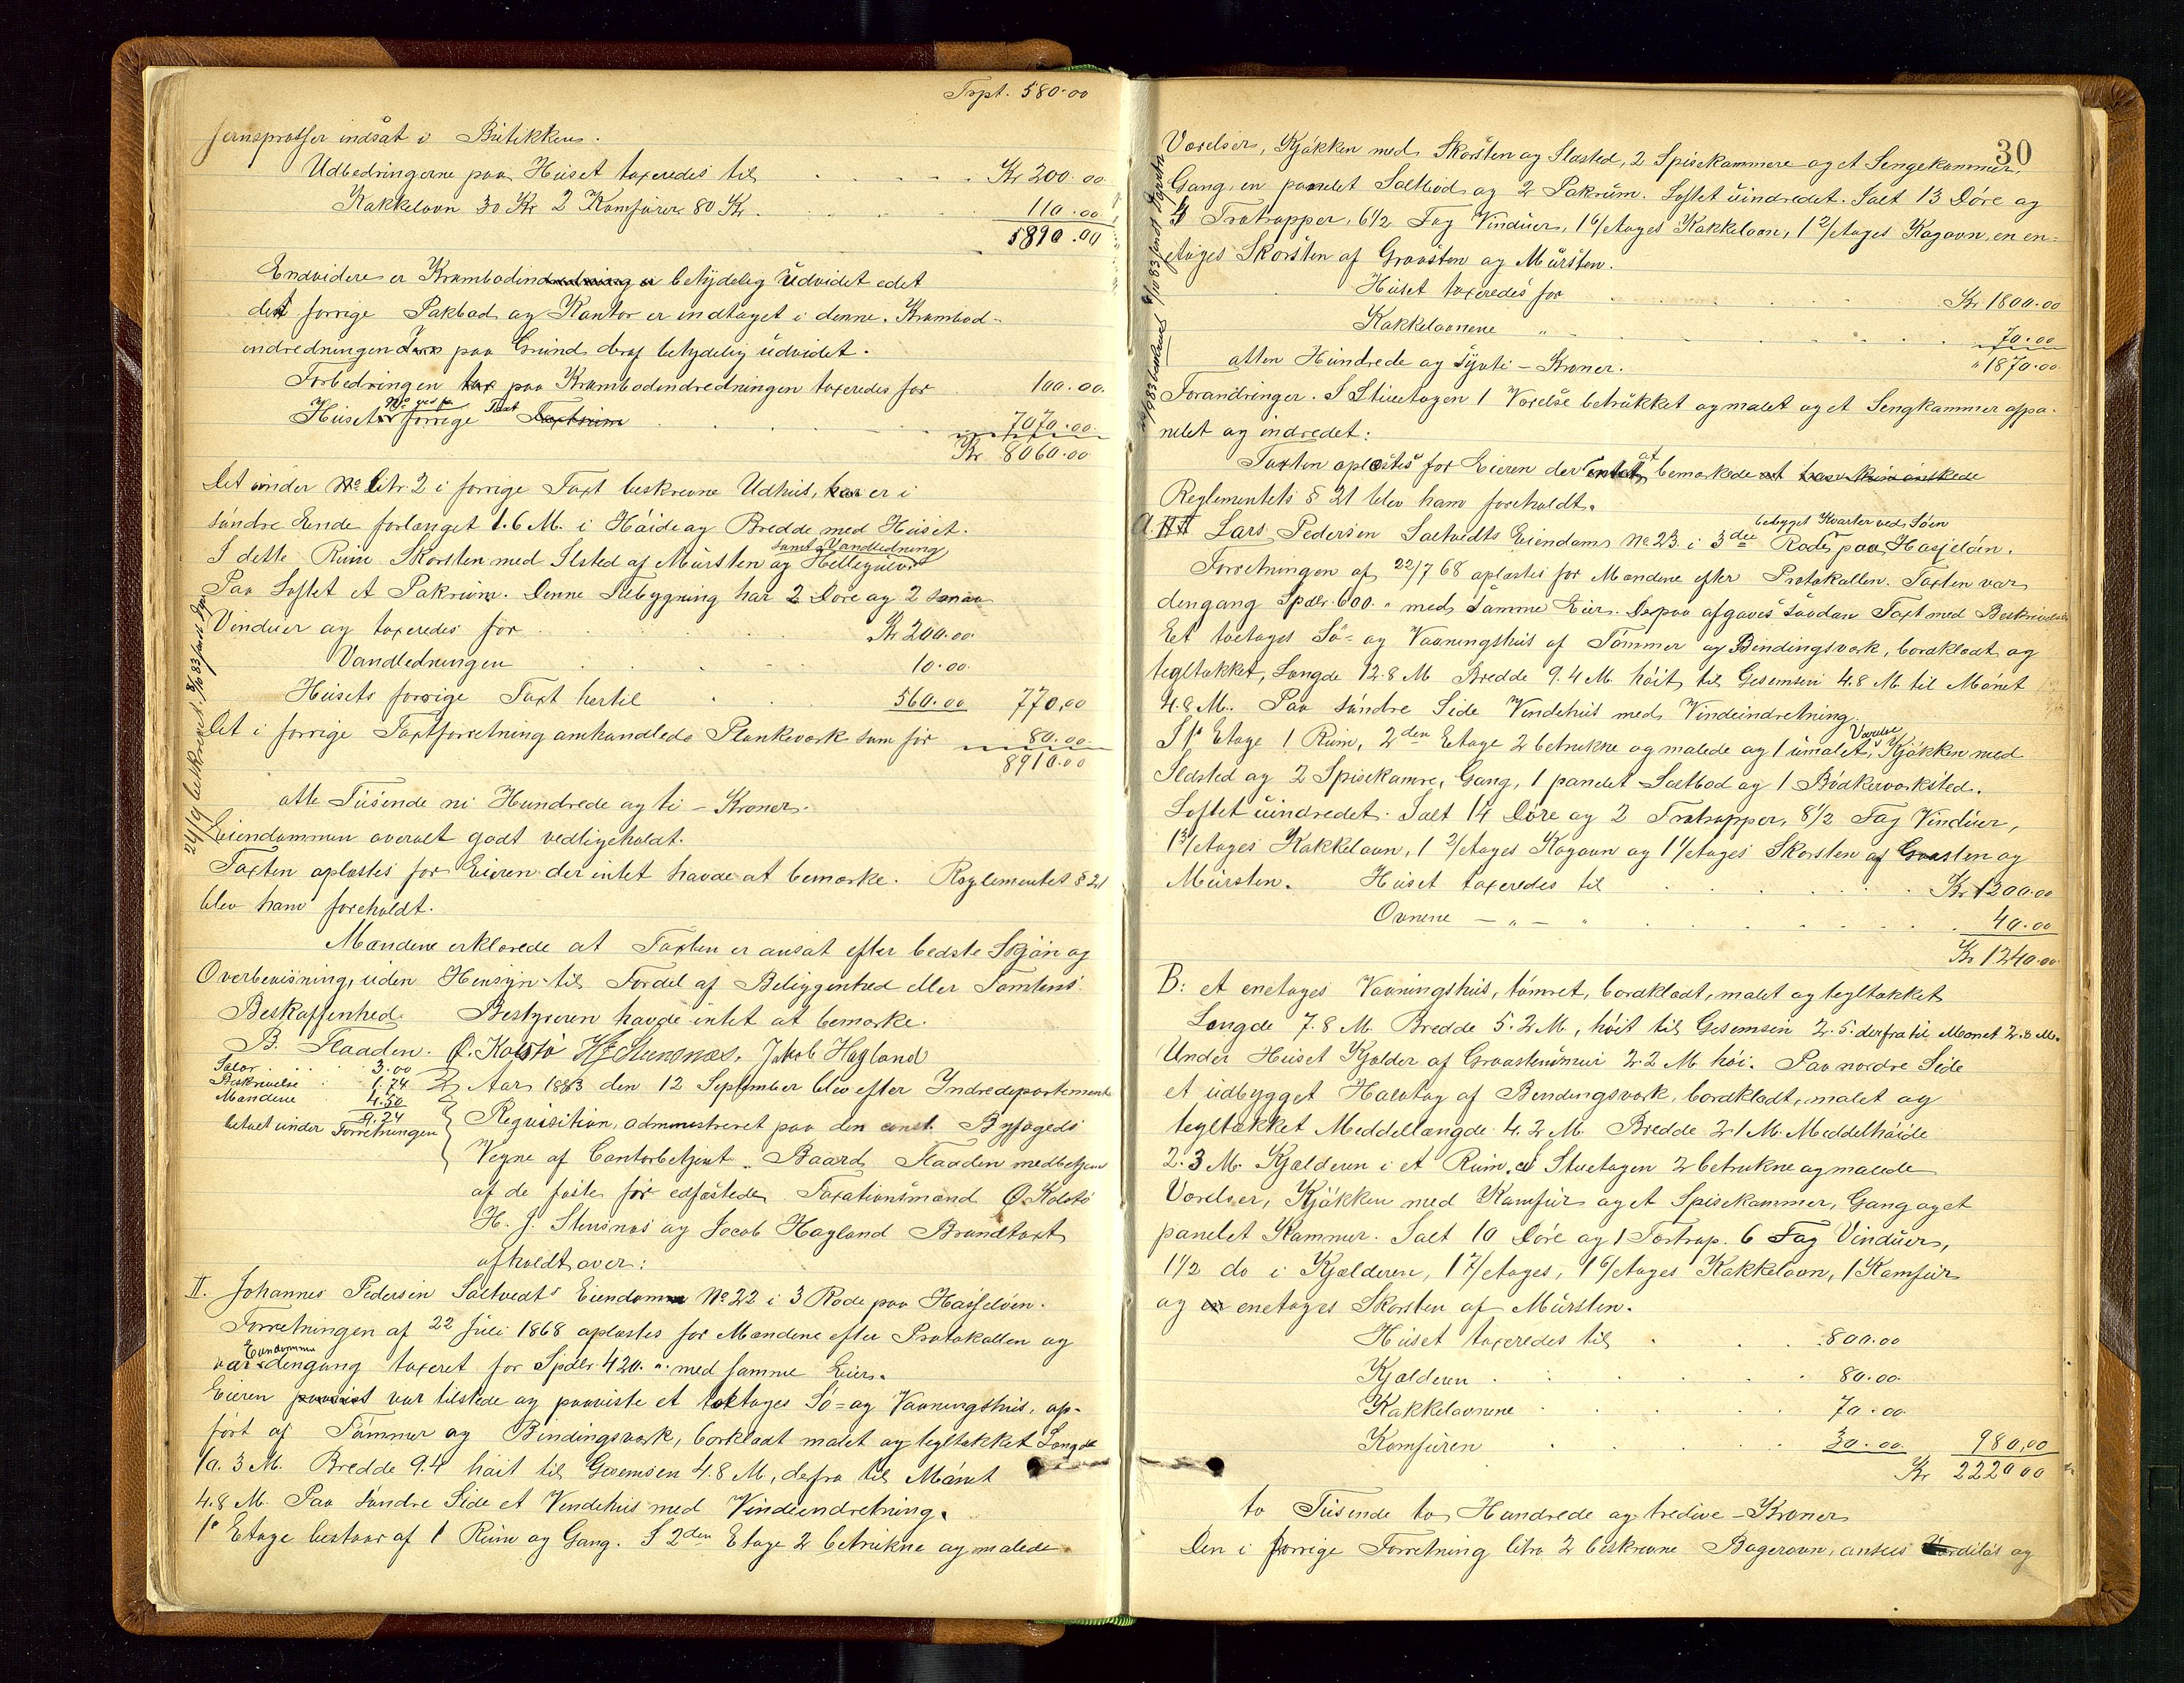 Trpt. 580.00
Jernsprosser indsat i Butikken.
Udbedringerne paa Huset taxeredes til Kr 200.00
Kakkelovn 30 Kr 2 Komfurer 80 Kr. 110.00
5890.00
Endvidere er Krambodind betydelig udvidet edet
det forrige Pakbod og Kontor er indtaget i denne. Krambod-
indredningen paa Grund deraf betydelig udvidet.
Forbedringen tax paa Krambodindredningen taxeredes for 100.00.
Husets forrige Taxt 7070.00
Kr 8060.00
Det under No Litr. 2 i forrige Taxt beskrevne Udhus, er i
söndre Ende forlænget 1.6 M. i Höide og Bredde med Huset.
samt Vandledning
I dette Rum Skorsten med Ilsted af Mursten og Hellegulv
Paa Loftet et Pakrum. Denne Tilbygning har 2 Döre og 2 smaa
Vinduer og taxeredes for Kr 200.00
Vandledningen 10.00.
Husets forrige Taxt hertil 560.00 770,00
Det i forrige Taxtforretning omhandlede Plankeværk som før 80.00
8910.00
otte Tusende ni Hundrede og ti – Kroner.
Eiendommen overalt godt vedligeholdt.
Taxten oplæstes for Eieren der intet havde at bemærke. Reglementet § 21
blev ham foreholdt.
Mændene erklærede at Taxten er ansat efter bedste Skjön og
Overbevisning, uden Hensyn til Fordel af Beliggenhed eller Tomtens
Beskaffenhed. Bestyreren havde intet at bemærke.
B. Flaaden. O. Kolstö H J Steensnæs. Jakob Hagland
Salær 3.00
Beskrivelse 1.74
Mændene 4.50
9.24
betalt under Forretningen
Aar 1883 den 12 September blev efter Indredepartements
Requisition, administreret paa den const. Byfogeds
Vegne af Contorbetjent Baard Flaaden medbetjent
af de faste för edfæstede Taxationsmænd O. Kolstö
H. J. Stensnæs og Jacob Hagland Brandtaxt
afholdt over:
II. Johannes Pedersen Saltvedts Eiendom No 22 i 3 Rode paa Hasseløen.
Forretningen af 22 Juli 1868 oplæstes for Mændene efter Protokollen og
Eiendommen
var dengang taxeret for Spdlr 420. " med samme Eier.
Eieren var tilstede og paaviste et toetages Sö- og Vaaningshus, op-
fört af Tömmer og Bindingsværk, bordklædt malet og tegltækket Længde
10.3 M. Bredde 9.4 höit til Gesemsen 4.8 M, derfra til Mönet
4.8 M. Paa söndre Side et Vendehus med Vindeindretning.
1e Etage bestaar af 1 Rum og Gang. I 2den Etage 2 betrukne og malede
30
Værelser, Kjökken med Skorsten og Ilsted, 2 Spisekammere og et Sengekammer
Gang en paanelet Saltbod og 2 Pakrum. Loftet uindredet. Ialt 13 Döre og
4 Tratrapper, 6 1/2 Fag Vinduer, 1 6/Etages Kakkelovn, 1 2/Etages Kogovn, en en-
etages Skorsten af Graasten og Mursten.
Huset taxeredes for Kr 1800.00
Kakkelovnene " 70.00
atten Hundrede og sytti – Kroner. " 1870.00
Forandringer. I Stueetagen 1 Værelse betrukket og malet og et Sengkammer afpa-
nelet og indredet:
Taxten oplæstes for Eieren der intet at bemærkede
Reglementets § 21 blev ham foreholdt.
bebygget Kvarter ved Söen
A. III Lars Pedersen Saltvedts Eiendom No 23 i 3die Rode paa Hasseløen.
Forretningen af 22/7 68 oplæstes for Mændene efter Protokollen. Taxten var
dengang Spdlr. 600. " med samme Eier. Derpaa afgaves saadan Taxt med Beskrivelse
Et toetages Sö- og Vaaningshus af Tömmer og Bindingsværk, bordklædt og
tegltækket, Længde 12.8 M Bredde 9.4 M. höit til Gesemsen 4.8 M. til Mönet
4.8 M. Paa söndre Side Vendehus med Vindeindretning.
Værelse
I 1e Etage 1 Rum, 2den Etage 2 betrukne og malede og 1 umalet, Kjökken med
Ildsted og 2 Spisekamre, Gang, 1 panelet Saltbod og 1 Bödkerværksted.
Loftet uindredet. Ialt 14 Döre og 2 Tratrapper, 8 1/2 Fag Vinduer,
1 3/Etages Kakkelovn, 1 2/Etages Kogovn og 1 1/etages Skorsten af Graasten og
Mursten. Huset taxeredes til Kr 1200.00
Ovnene – " – " 40.00
Kr 1240.00
B: et enetages Vaaningshus, tömret, bordklædt, malet og tegltækket
Længde 7.8 M. Bredde 5.2 M, höit til Gesemsen 2.5. derfra til Mönet 2.8 M.
Under Huset Kjælder af Graastensmur 2.2 M höi. Paa nordre Side
et udbygget Halvtag af Bindingsværk, bordklædt, malet og
tegltækket Meddellængde 4.2 M. Bredde 2.1 M. Meddelhöide
2.3 M. Kjælderen i et Rum, i Stuetagen 2 betrukne og malede
Værelser, Kjökken med Komfur og et Spisekammer, Gang og et
panelet Kammer. Ialt 10 Döre og 1 Tratrap. 6 Fag Vinduer,
1 1/2 do i Kjælderen, 1 7/Etages, 1 6/Etages Kakkelovn, 1 Komfur
og enetages Skorsten af Mursten.
Huset taxeredes til 800.00
Kjælderen 80.00.
Kakkelovnene 70.00
Komfuren 30.00. 980,00
Kr 2220 00
to Tusende to Hundrede og tredive – Kroner
Den i forrige Forretning litra 2 beskrevne Bagerovn, ansees Værdilös og